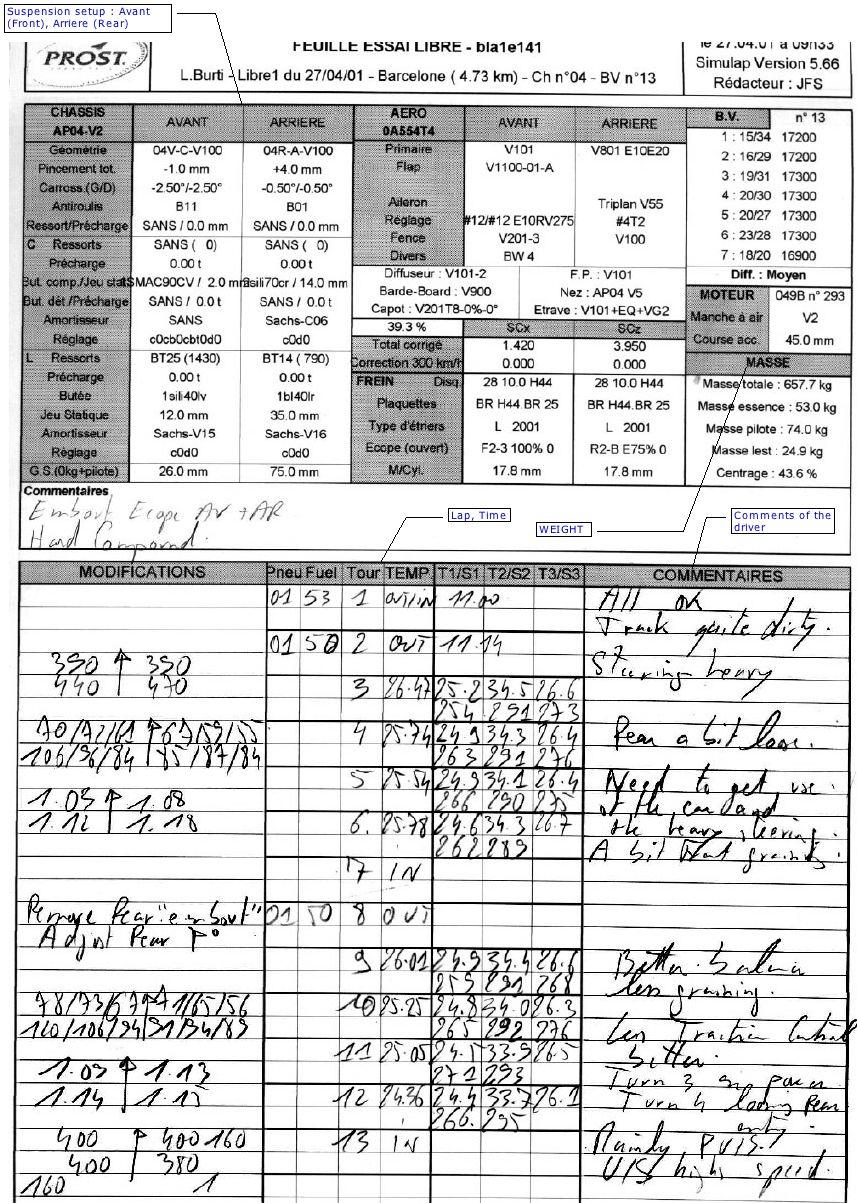 Suspension setup : Avant
(Front), Arriere (Rear)
PROST.
FEUILLE ESSAI LIBRE - bla1e141
L.Burti - Libre1 du 27/04/01 - Barcelone ( 4.73 km) - Ch n°04 - BV n°13
le 27.04.01 à 09h33
Simulap Version 5.66
Rédacteur : JFS
CHASSIS AP04-V2 AVANT ARRIERE
Géométrie 04V-C-V100 04R-A-V100
Pincement tot. -1.0 mm +4.0 mm
Carross.(G/D) -2.50°/-2.50° -0.50°/-0.50°
Antiroulis B11 B01
Ressort/Précharge SANS / 0.0 mm SANS / 0.0 mm
C Ressorts SANS ( 0) SANS ( 0)
Précharge 0.00 t 0.00 t
But. comp./Jeu stat SMAC90CV / 2.0 mm 3sili70cr / 14.0 mm
But. dét./Précharge SANS / 0.0 t SANS / 0.0 t
Amortisseur SANS Sachs-C06
Réglage c0cb0cbt0d0 c0d0
L Ressorts BT25 (1430) BT14 ( 790)
Précharge 0.00 t 0.00 t
Butée 1sili40lv 1bl40lr
Jeu Statique 12.0 mm 35.0 mm
Amortisseur Sachs-V15 Sachs-V16
Réglage c0d0 c0d0
G.S.(0kg+pilote) 26.0 mm 75.0 mm
AERO 0A554T4 AVANT ARRIERE
Primaire V101 V801 E10E20
Flap V1100-01-A
Aileron Triplan V55
Réglage #12/#12 E10RV275 #4T2
Fence V201-3 V100
Divers BW 4
Diffuseur : V101-2 F.P. : V101
Barde-Board : V900 Nez : AP04 V5
Capot : V201T8-0%-0° Etrave : V101+EQ+VG2
39.3 % SCx SCz
Total corrigé 1.420 3.950
Correction 300 km/h 0.000 0.000
FREIN Disq. 28 10.0 H44 28 10.0 H44
Plaquettes BR H44.BR 25 BR H44.BR 25
Type d'étriers L 2001 L 2001
Ecope (ouvert) F2-3 100% 0 R2-B E75% 0
M/Cyl. 17.8 mm 17.8 mm
B.V. n° 13
1 : 15/34 17200
2 : 16/29 17200
3 : 19/31 17300
4 : 20/30 17300
5 : 20/27 17300
6 : 23/28 17300
7 : 18/20 16900
Diff. : Moyen
MOTEUR 049B n° 293
Manche à air V2
Course acc. 45.0 mm
MASSE
Masse totale : 657.7 kg
Masse essence : 53.0 kg
Masse pilote : 74.0 kg
Masse lest : 24.9 kg
Centrage : 43.6 %
Commentaires
Embout Ecope AV + AR
Hard Compound.
Lap, Time
WEIGHT
Comments of the
driver
MODIFICATIONS Pneu Fuel Tour TEMP. T1/S1 T2/S2 T3/S3 COMMENTAIRES
01 53 1 OUT/IN 11.00 All ok
Track quite dirty.
01 50 2 OUT 11.14
390 ↑ 390 Steering heavy
440 | 470 3 26.47 25.2 34.5 26.6
254 291 273
70/72/61 ↑ 67/59/55 4 25.74 24.9 34.3 26.4 Rear a bit loose.
106/96/84 | 85/87/84 263 291 276
5 25.54 24.9 34.1 26.4 Need to get use
1.03 ↑ 1.08 266 290 275 of the car and
1.12 | 1.18 6. 25.78 24.6 34.3 26.7 the heavy steering.
262 289 A bit front graining.
7 IN
Remove Rear "embout" 01 50 8 OUT
Adjust Rear P°
9 26.01 24.9 34.4 26.6 Better balance
259 291 268 less graining.
78/73/67 ↑ 71/65/56 10 25.25 24.8 34.0 26.3
120/106/94 | 91/94/89 265 292 276 Less Traction Control
11 25.05 24.5 33.9 26.5 better.
1.09 ↑ 1.13 271 293 Turn 3 on power
1.14 | 1.15 12 24.36 24.4 33.7 26.1 Turn 4 loosing Rear
266. 295 entry
400 ↑ 400 160 13 IN Mainly
400 | 380 U/S high speed.
160 1